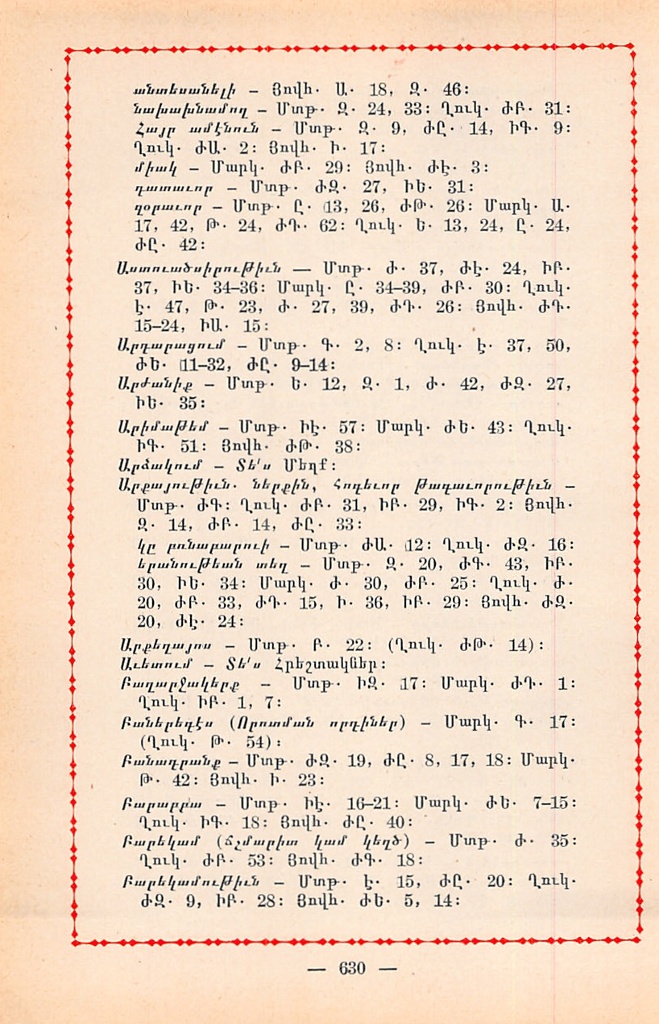 անտեսանելի – Յովհ. Ա. 18, Զ. 46:
նախախնամող – Մտթ. Զ. 24, 33: Ղուկ. ԺԲ. 31:
Հայր ամէնուն – Մտթ. Զ. 9, ԺԸ. 14, ԻԳ. 9:
Ղուկ. ԺԱ. 2: Յովհ. Ի. 17:
միակ – Մարկ. ԺԲ. 29: Յովհ. ԺԷ. 3:
դատաւոր – Մտթ. ԺԶ. 27, ԻԵ. 31:
զօրաւոր – Մտթ. Ը. 13, 26, ԺԹ. 26: Մարկ. Ա.
17, 42, Թ. 24, ԺԴ. 62: Ղուկ. Ե. 13, 24, Ը. 24,
ԺԸ. 42:
Աստուածսիրութիւն — Մտթ. Ժ. 37, ԺԷ. 24, ԻԲ.
37, ԻԵ. 34–36: Մարկ. Ը. 34–39, ԺԲ. 30: Ղուկ.
Է. 47, Թ. 23, Ժ. 27, 39, ԺԴ. 26: Յովհ. ԺԴ.
15–24, ԻԱ. 15:
Արդարացում – Մտթ. Գ. 2, 8: Ղուկ. Է. 37, 50,
ԺԵ. 11–32, ԺԸ. 9–14:
Արժանիք – Մտթ. Ե. 12, Զ. 1, Ժ. 42, ԺԶ. 27,
ԻԵ. 35:
Արիմաթեմ – Մտթ. ԻԷ. 57: Մարկ. ԺԵ. 43: Ղուկ.
ԻԳ. 51: Յովհ. ԺԹ. 38:
Արձակում – Տե՛ս Մեղք:
Արքայութիւն. ներքին, հոգեւոր թագաւորութիւն –
Մտթ. ԺԳ: Ղուկ. ԺԲ. 31, ԻԲ. 29, ԻԳ. 2: Յովհ.
Զ. 14, ԺԲ. 14, ԺԸ. 33:
կը բռնաբարուի – Մտթ. ԺԱ. 12: Ղուկ. ԺԶ. 16:
երանութեան տեղ – Մտթ. Զ. 20, ԺԳ. 43, ԻԲ.
30, ԻԵ. 34: Մարկ. Ժ. 30, ԺԲ. 25: Ղուկ. Ժ.
20, ԺԲ. 33, ԺԴ. 15, Ի. 36, ԻԲ. 29: Յովհ. ԺԶ.
20, ԺԷ. 24:
Արքեղայոս – Մտթ. Բ. 22: (Ղուկ. ԺԹ. 14):
Աւետում – Տե՛ս Հրեշտակներ:
Բաղարջակերք – Մտթ. ԻԶ. 17: Մարկ. ԺԴ. 1:
Ղուկ. ԻԲ. 1, 7:
Բաներեգէս (Որոտման որդիներ) – Մարկ. Գ. 17:
(Ղուկ. Թ. 54):
Բանադրանք – Մտթ. ԺԶ. 19, ԺԸ. 8, 17, 18: Մարկ.
Թ. 42: Յովհ. Ի. 23:
Բարաբբա – Մտթ. ԻԷ. 16–21: Մարկ. ԺԵ. 7–15:
Ղուկ. ԻԳ. 18: Յովհ. ԺԸ. 40:
Բարեկամ (ճշմարիտ կամ կեղծ) – Մտթ. Ժ. 35:
Ղուկ. ԺԲ. 53: Յովհ. ԺԳ. 18:
Բարեկամութիւն – Մտթ. Է. 15, ԺԸ. 20: Ղուկ.
ԺԶ. 9, ԻԲ. 28: Յովհ. ԺԵ. 5, 14:
— 630 —